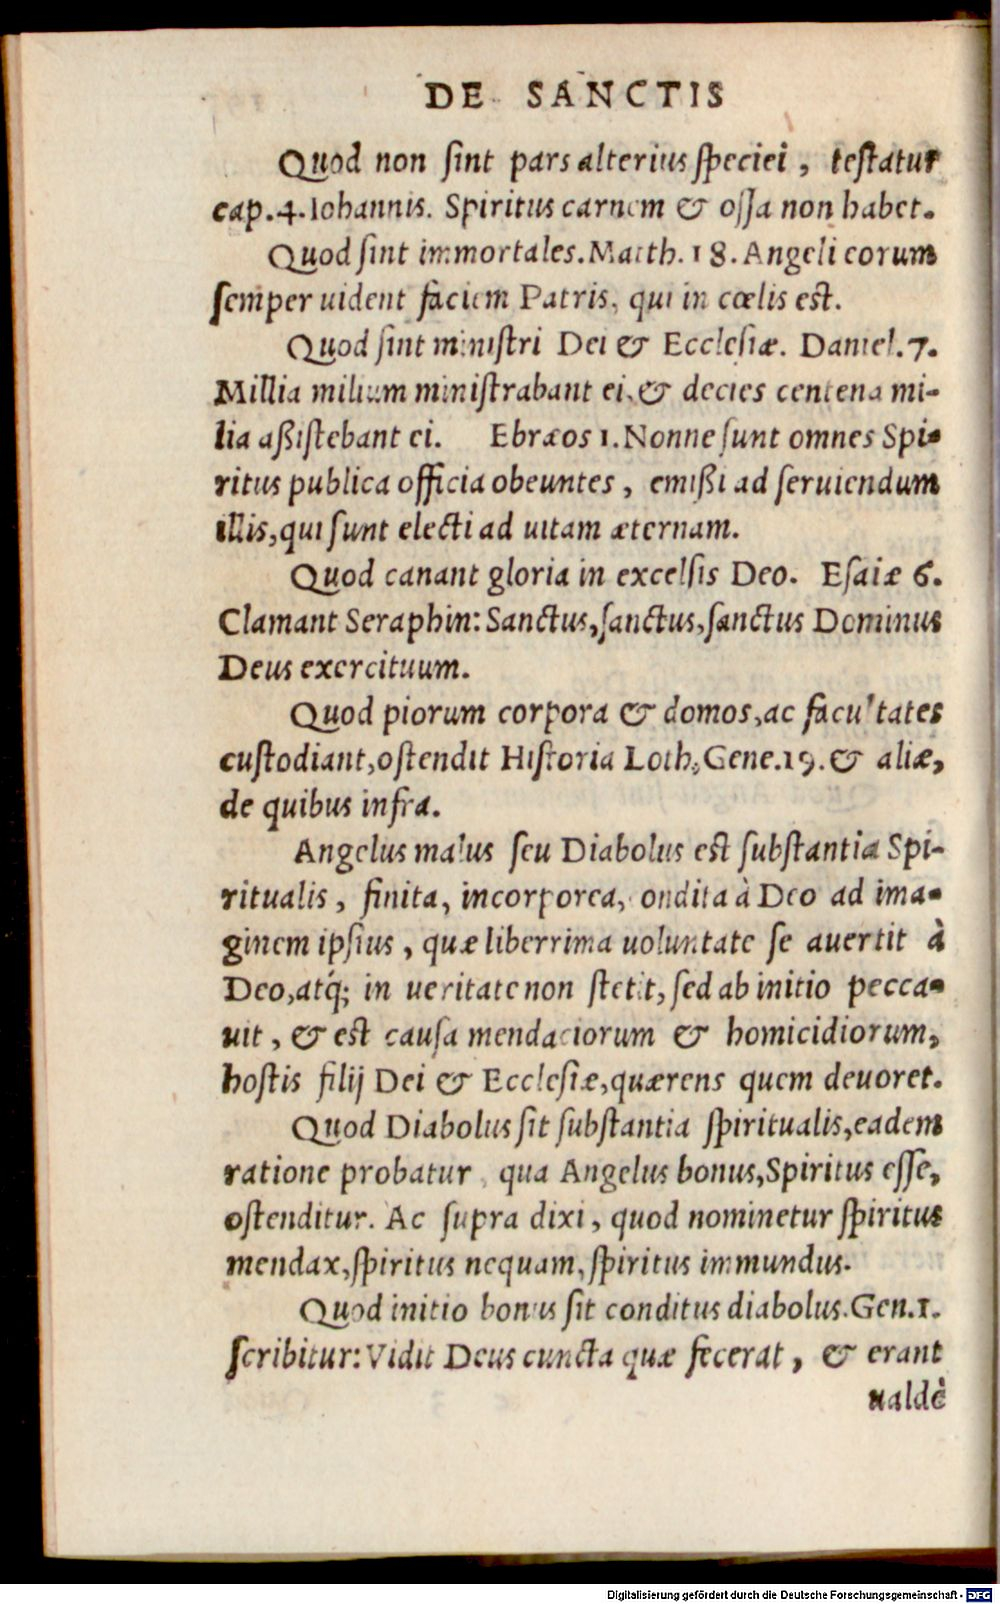 DE SANCTIS
Quod non ſint pars alterius ſpeciei, teſtatur
cap.4.Iohannis. Spiritus carnem & oſſa non habet.
Quod ſint immortales. Matth. 18. Angeli eorum
ſemper uident faciem Patris, qui in cœlis eſt.
Quod ſint miniſtri Dei & Eccleſiæ. Daniel.7.
Millia milium miniſtrabant ei, & decies centena mi-
lia aßiſtebant ei. Ebræos 1. Nonne ſunt omnes Spi-
ritus publica officia obeuntes, emißi ad ſeruiendum
illis, qui ſunt electi ad uitam æternam.
Quod canant gloria in excelſis Deo. Eſaiæ 6.
Clamant Seraphin: Sanctus, ſanctus, ſanctus Dominus
Deus exercituum.
Quod piorum corpora & domos, ac facultates
cuſtodiant, oſtendit Hiſtoria Loth, Gene.19. & aliæ,
de quibus infra.
Angelus malus ſeu Diabolus eſt ſubſtantia Spi-
ritualis, finita, incorporea, ondita à Deo ad ima-
ginem ipſius, quæ liberrima uoluntate ſe auertit à
Deo, atq́; in ueritate non ſtetit, ſed ab initio pecca-
uit, & eſt cauſa mendaciorum & homicidiorum,
hoſtis filij Dei & Eccleſiæ, quærens quem deuoret.
Quod Diabolus ſit ſubſtantia ſpiritualis, eadem
ratione probatur, qua Angelus bonus, Spiritus eſſe,
oſtenditur. Ac ſupra dixi, quod nominetur ſpiritus
mendax, ſpiritus nequam, ſpiritus immundus.
Quod initio bonus ſit conditus diabolus. Gen.1.
ſcribitur: Vidit Deus cuncta quæ fecerat, & erant
ualdè
Digitalisierung gefördert durch die Deutsche Forschungsgemeinschaft - DFG